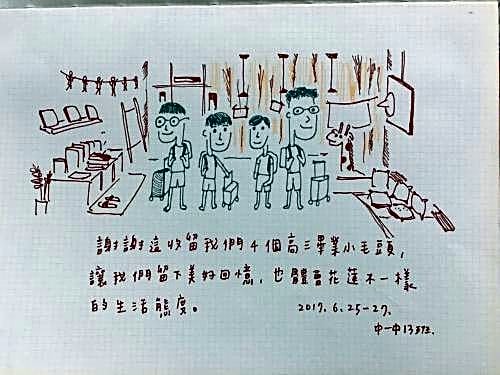 謝謝這收留我們4個高三畢業小毛頭,
讓我們留下美好回憶,也體會花蓮不一樣
的生活態度。
2017.6.25-27.
中一中13班